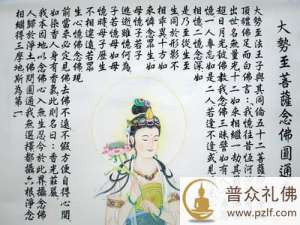 大勢至菩薩念佛圓通
大勢至法王子與其同倫五十二菩薩
頂禮佛足而白佛言我憶往昔恆河
出世名無量光十二如來相繼一劫其
超日月光彼佛教我念佛三昧譬如有
憶一人專忘如是二人若逢不逢或見
相憶二憶念深
如是乃至從生至
生同於形影不
相乖異十方如
來憐念眾生
如母憶子若子
逃逝雖憶何為
子若憶母如母
憶時母子歷生
不相違遠若眾
生心憶佛念佛現
前當來必定見佛去佛不遠不假方便自得心開
如染香人身有香氣此則名曰香光莊嚴
我本因地以念佛心入無生忍今於此界攝念佛
人歸於淨土佛問圓通我無選擇都攝六根淨念
相繼得三摩地斯為第一
普众礼佛
www.pzlf.com